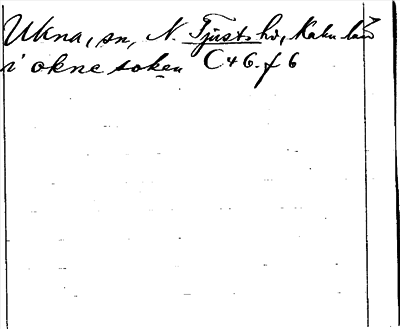 Ukna, sn, N. Tjusts hd, Kalm län
i okne soken C 46. f 6